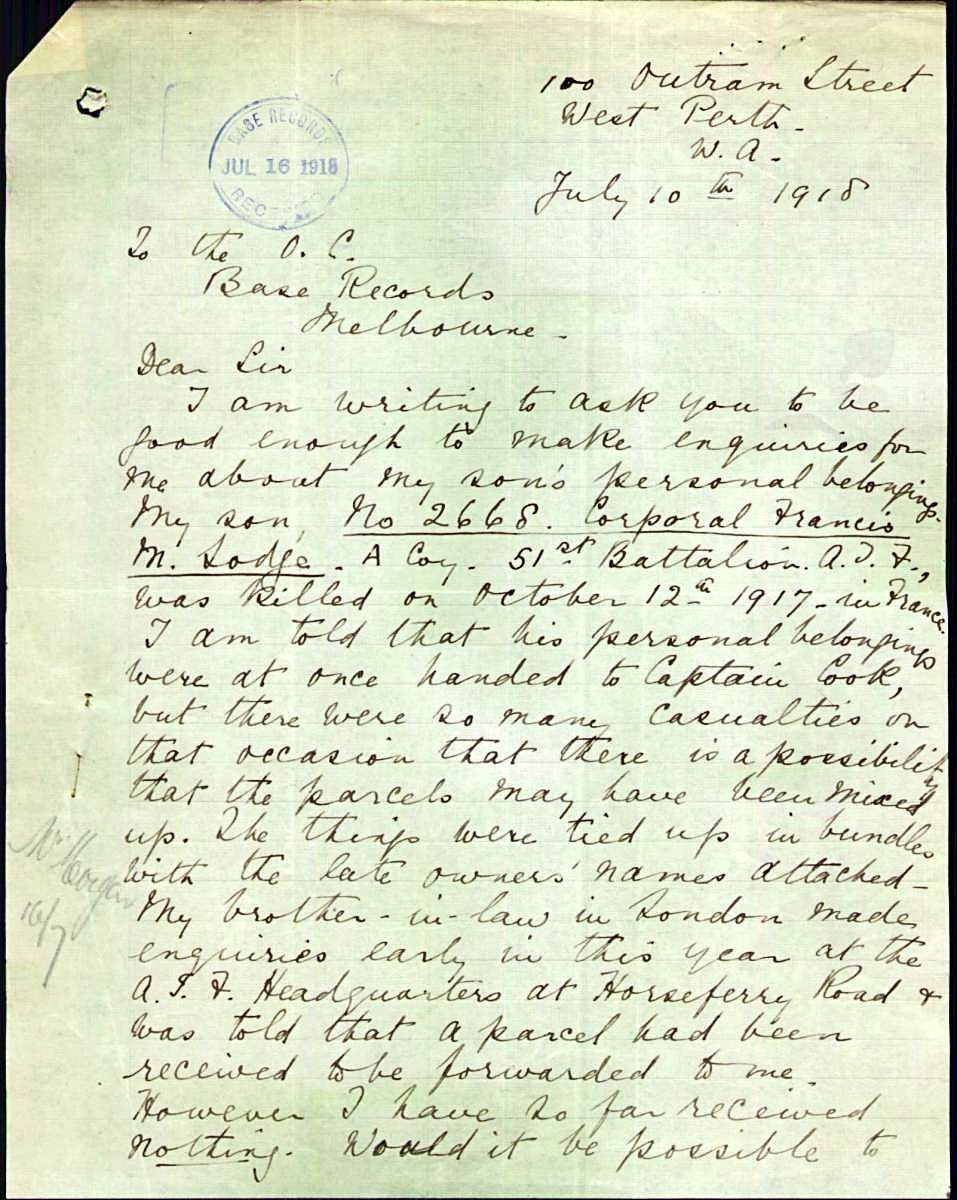 100 Outram Street
West Perth -
W. A -
July 10 th 1918
BASE RECORDS
JUL 16 1918
RECEIVED
To the O. C.
Base Records
Melbourne -
Dear Sir
I am writing to ask you to be
good enough to make enquiries for
me about my son's personal belongings.
My son, No 2668. Corporal Francis
M. Lodge. A Coy. 51st Battalion. A. I. F.,
was killed on October 12th 1917 - in France.
I am told that his personal belongings
were at once handed to Captain Cook,
but there were so many casualties on
that occasion that there is a possibility
that the parcels may have been mixed
up. The things were tied up in bundles
with the late owners' names attached -
My brother-in-law in London made
enquiries early in this year at the
A. I. F. Headquarters at Horseferry Road &
was told that a parcel had been
received to be forwarded to me.
However I have so far received
nothing. Would it be possible to
16/7